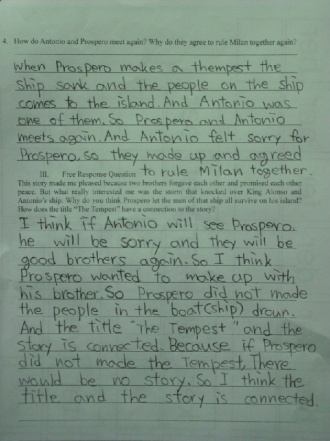 4. How do Antonio and Prospero meet again? Why do they agree to rule Milan together again?
when Prospero makes a thempest the
ship sank and the people on the ship
comes to the island. And Antonio was
one of them. So Prospero and Antonio
meets again. And Antonio felt sorry for
Prospero. so they made up and agreed
to rule Milan together.
III. Free Response Question
This story made me pleased because two brothers forgave each other and promised each other
peace. But what really interested me was the storm that knocked over King Alonso and
Antonio's ship. Why do you think Prospero let the men of that ship all survive on his island?
How does the title "The Tempest" have a connection to the story?
I think if Antonio will see Prospero.
he will be sorry and they will be
good brothers again. So I think
Prospero wanted to make up with
his brother. So Prospero did not made
the people in the boat(ship) drown.
And the title "The Tempest" and the
story is connected. Because if Prospero
did not made the Tempest, There
would be no story. So I think the
title and the story is connected.